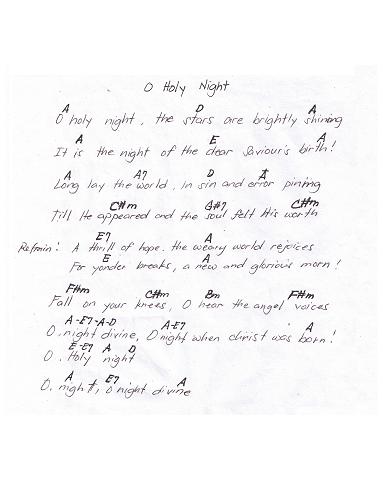 O Holy Night
A D A
O holy night, the stars are brightly shining
A E A
It is the night of the dear Saviour's birth!
A A7 D A
Long lay the world, in sin and error pining
C#m G#7 C#m
Till He appeared and the soul felt His worth
E7 A
Refrain: A thrill of hope. the weary world rejoices
E A
For yonder breaks, a new and glorious morn!
F#m C#m Bm F#m
Fall on your knees, O hear the angel voices
A-E7-A-D A-E7 A
O. night divine, O night when christ was born!
E-E7 A D
O. Holy night
A E7 A
O. night, O night divine